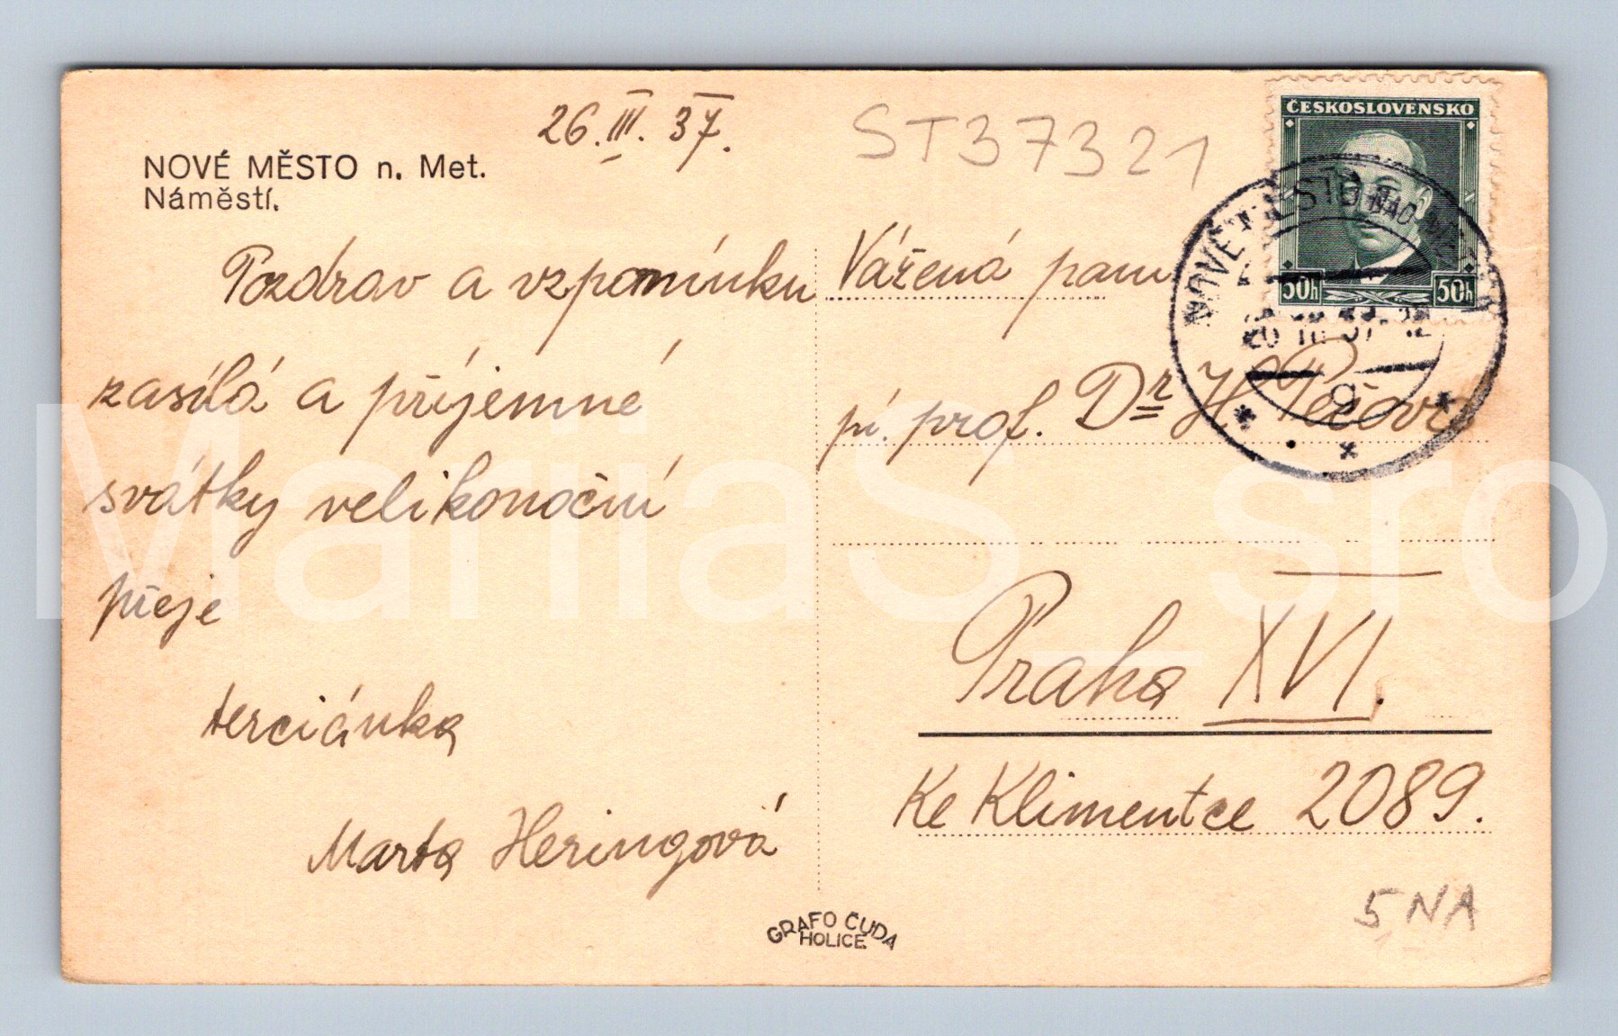 NOVÉ MĚSTO n. Met.
Náměstí.
26. III. 37.
ST37321
Pozdrav a vzpomínku
zasílá a příjemné
svátky velikonoční
přeje
terciánka
Marta Heringová
ČESKOSLOVENSKO
50h 50h
NOVÉ MĚSTO NAD
26 III 37-12
Vážená paní
pí. prof. Dr H. Pečová
Praha XVI.
Ke Klimentce 2089.
5 NA
GRAFO ČUDA
HOLICE
MariiaS_sro